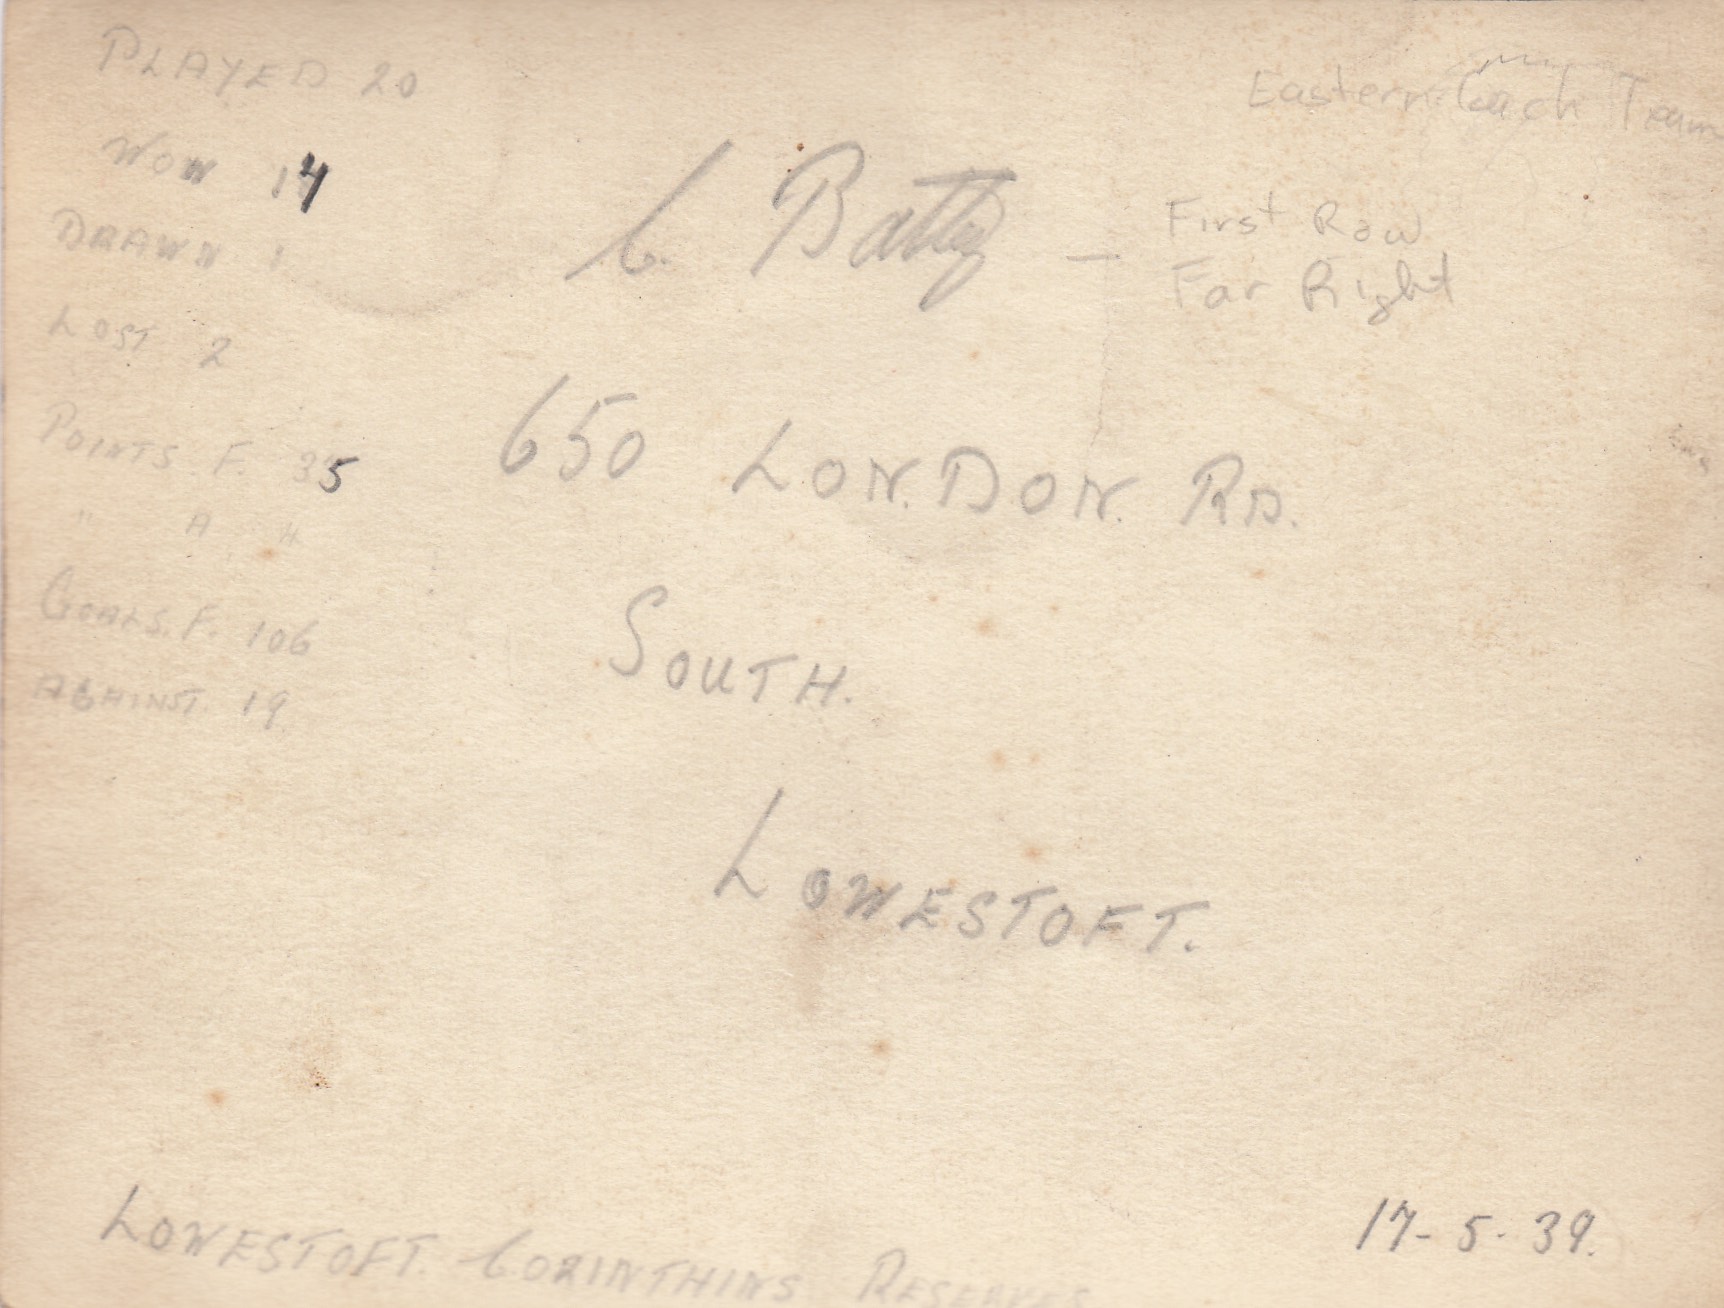 PLAYED 20
WON 14
DRAWN 1
LOST 2
POINTS. F. 35
" A "
GOALS. F. 106
AGAINST. 19.
Eastern Coach Team
C. Batty — First Row
Far Right
650 LONDON. RD.
SOUTH.
LOWESTOFT.
LOWESTOFT. CORINTHINS RESERVES
17-5-39.